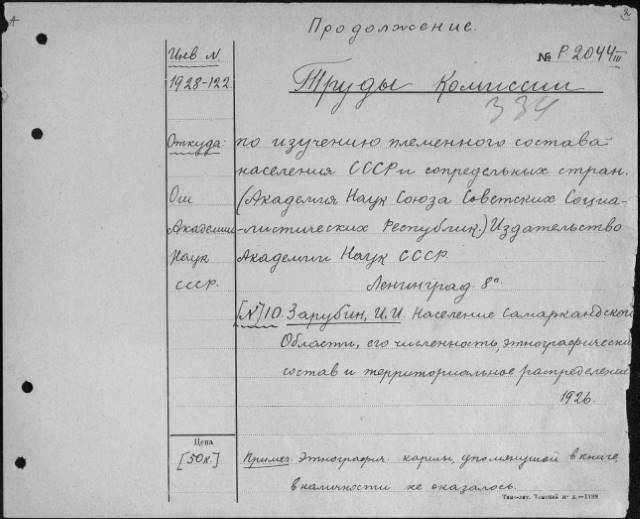 Продолжение.
2
Инв N
№ Р2044 III
1928-122.
Труды Комиссии
334
Откуда:
по изучению племенного состава
населения СССР и сопредельных стран.
От
(Академия Наук Союза Советских Социа-
Академии
-листических Республик.) Издательство
Наук
Академии Наук СССР
СССР.
Ленинград 8º
[N]10. Зарубин, И.И. Население Самаркандской
Области, его численность, этнографический
состав и территориальное распределение
1926.
Цена
[50к.]
Примеч. Этнография. карты, упомянутой в книге,
в наличности не оказалось.